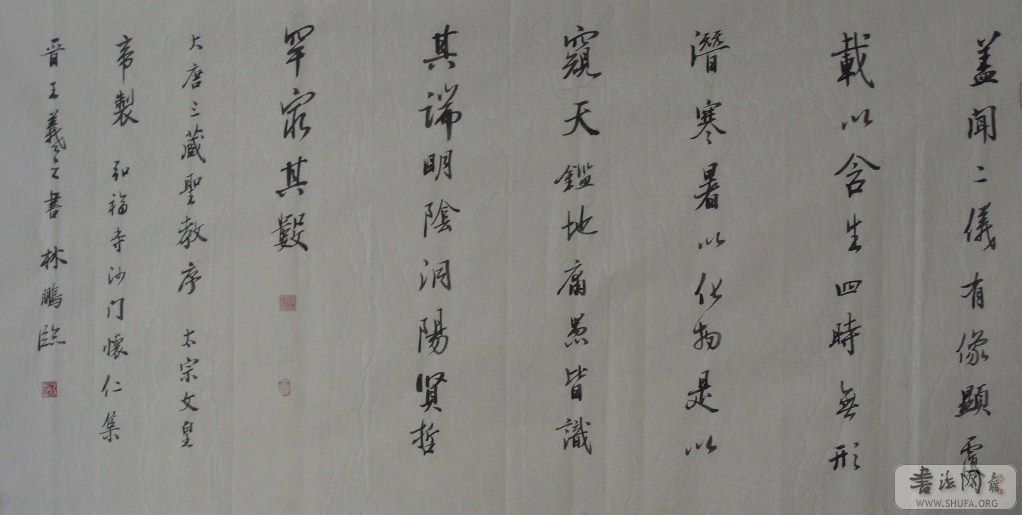 盖闻二仪有像显覆
載以含生四時無形
潛寒暑以化物是以
窺天鑑地庸愚皆識
其端明陰洞陽贤哲
罕窮其數
大唐三藏聖教序 太宗文皇
帝製 弘福寺沙门懷仁集
晉王羲之書 林鵬臨
书法网
WWW.SHUFA.ORG